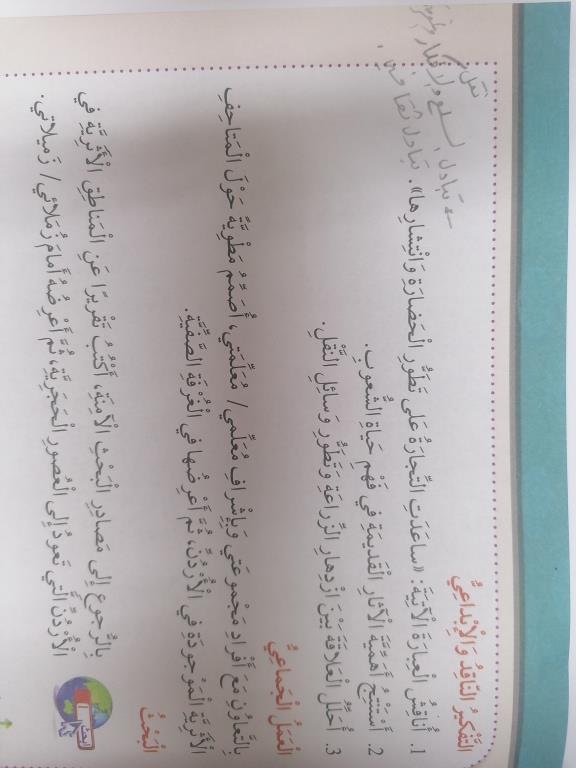 نقل
← تبادل السلع والأفكار
تبادل ثقافي.
التَّفْكيرُ النّاقِدُ وَالْإِبْداعِيُّ
1. أُناقِشُ الْعِبارَةَ الْآتِيَةَ: «ساعَدَتِ التِّجارَةُ عَلى تَطَوُّرِ الْحَضارَةِ وَانْتِشارِها».
2. أَسْتَنْتِجُ أَهَمِّيَّةَ الْآثارِ الْقَديمَةِ في فَهْمِ حَياةِ الشُّعوبِ.
3. أُحَلِّلُ الْعَلاقَةَ بَيْنَ ازْدِهارِ الزِّراعَةِ وَتَطَوُّرِ وَسائِلِ النَّقْلِ.
الْعَمَلُ الْجَماعِيُّ
بِالتَّعاوُنِ مَعَ أَفْرادِ مَجْموعَتي وَبِإِشْرافِ مُعَلِّمي/ مُعَلِّمَتي، أُصَمِّمُ مَطْوِيَّةً حَوْلَ الْمَتاحِفِ
الْأَثَرِيَّةِ الْمَوْجودَةِ في الْأُرْدُنِّ، ثُمَّ أَعْرِضُها في الْغُرْفَةِ الصَّفِّيَّةِ.
الْبَحْثُ
بِالرُّجوعِ إِلى مَصادِرِ الْبَحْثِ الْآمِنَةِ، أَكْتُبُ تَقْريرًا عَنِ الْمَناطِقِ الْأَثَرِيَّةِ في
الْأُرْدُنِّ الَّتي تَعودُ إِلى الْعُصورِ الْحَجَرِيَّةِ، ثُمَّ أَعْرِضُهُ أَمامَ زُمَلائي/ زَميلاتي.
ابحث